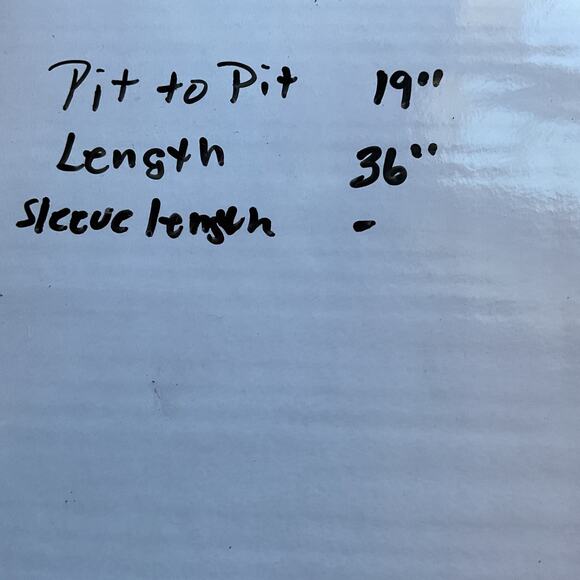 Pit to Pit 19"
Length 36"
Sleeve length -